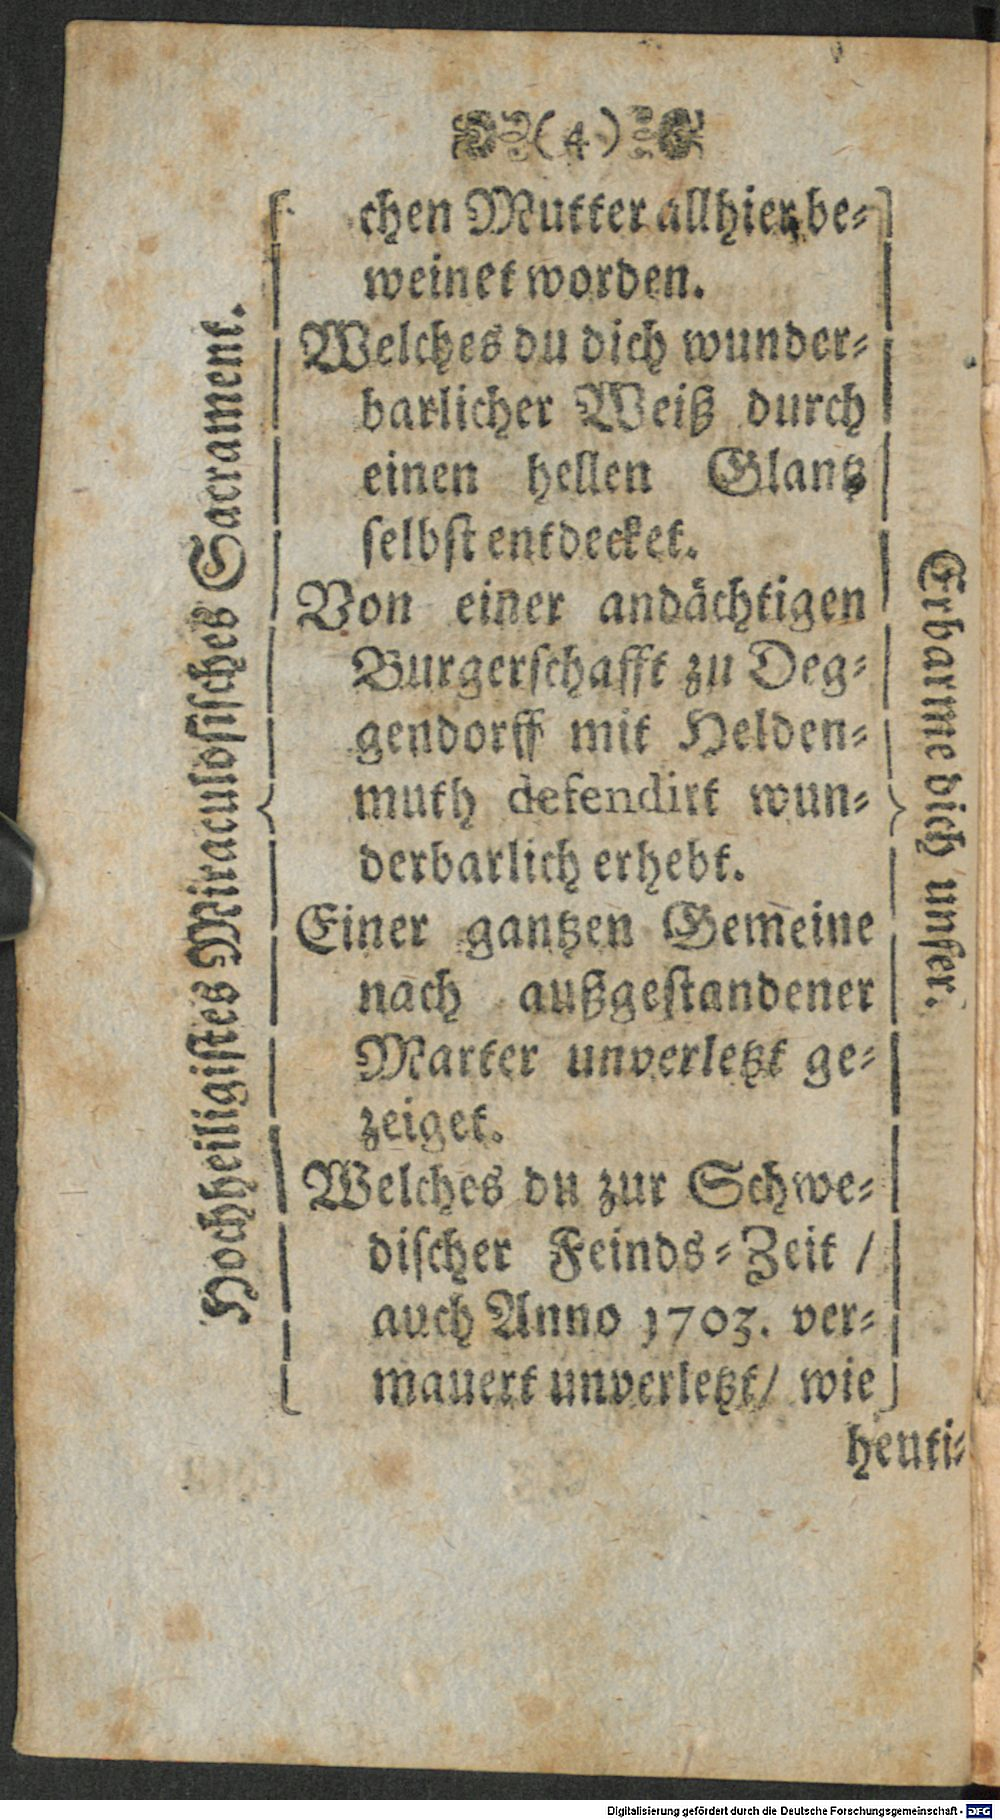 (4)
Hochheiligistes Miraculosisches Sacrament.
chen Mutter allhier be-
weinet worden.
Welches du dich wunder-
barlicher Weiß durch
einen hellen Glantz
selbst entdecket.
Von einer andächtigen
Burgerschafft zu Deg-
gendorff mit Helden-
muth defendirt wun-
derbarlich erhebt.
Einer gantzen Gemeine
nach außgestandener
Marter unverletzt ge-
zeiget.
Welches du zur Schwe-
discher Feinds-Zeit /
auch Anno 1703. ver-
mauert unverletzt/ wie
Erbarme dich unser.
heuti-
Digitalisierung gefördert durch die Deutsche Forschungsgemeinschaft - DFG